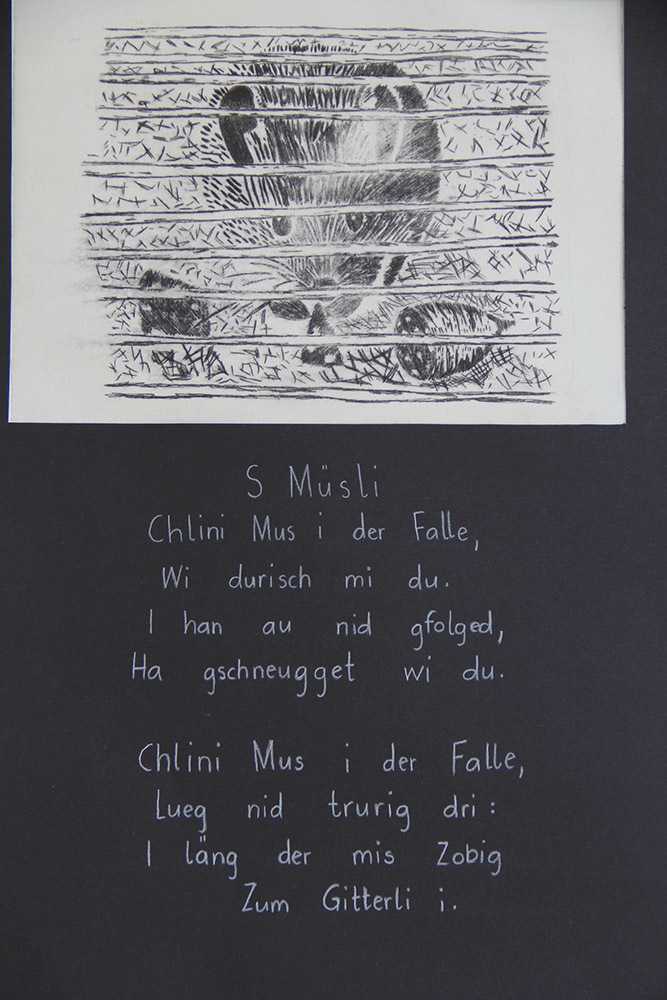 S Müsli
Chlini Mus i der Falle,
Wi durisch mi du.
I han au nid gfolged,
Ha gschneugget wi du.
Chlini Mus i der Falle,
Lueg nid trurig dri:
I läng der mis Zobig
Zum Gitterli i.